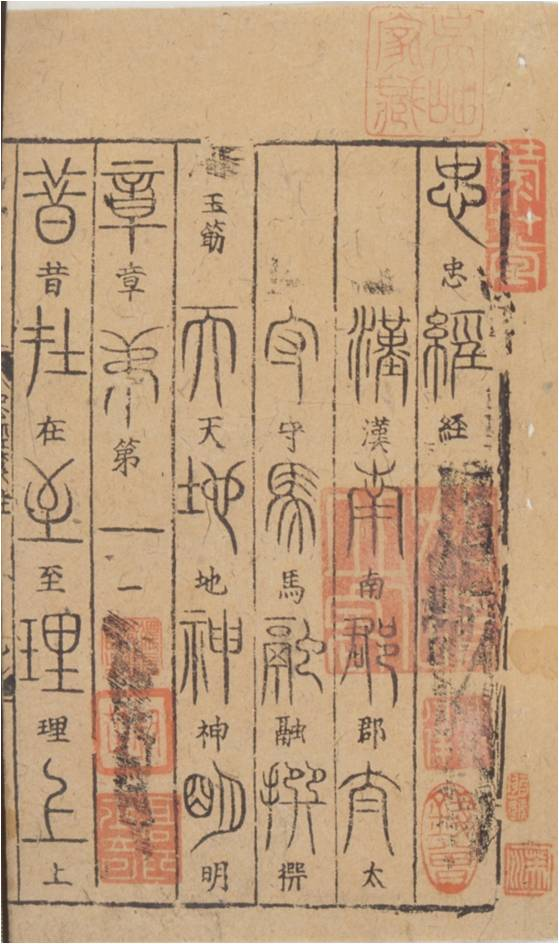 忠忠經経
漢漢南南郡郡太太
守守馬馬融融撰撰
玉筯天天地地神神明明
章章第第一一
昔昔在在至至理理上上